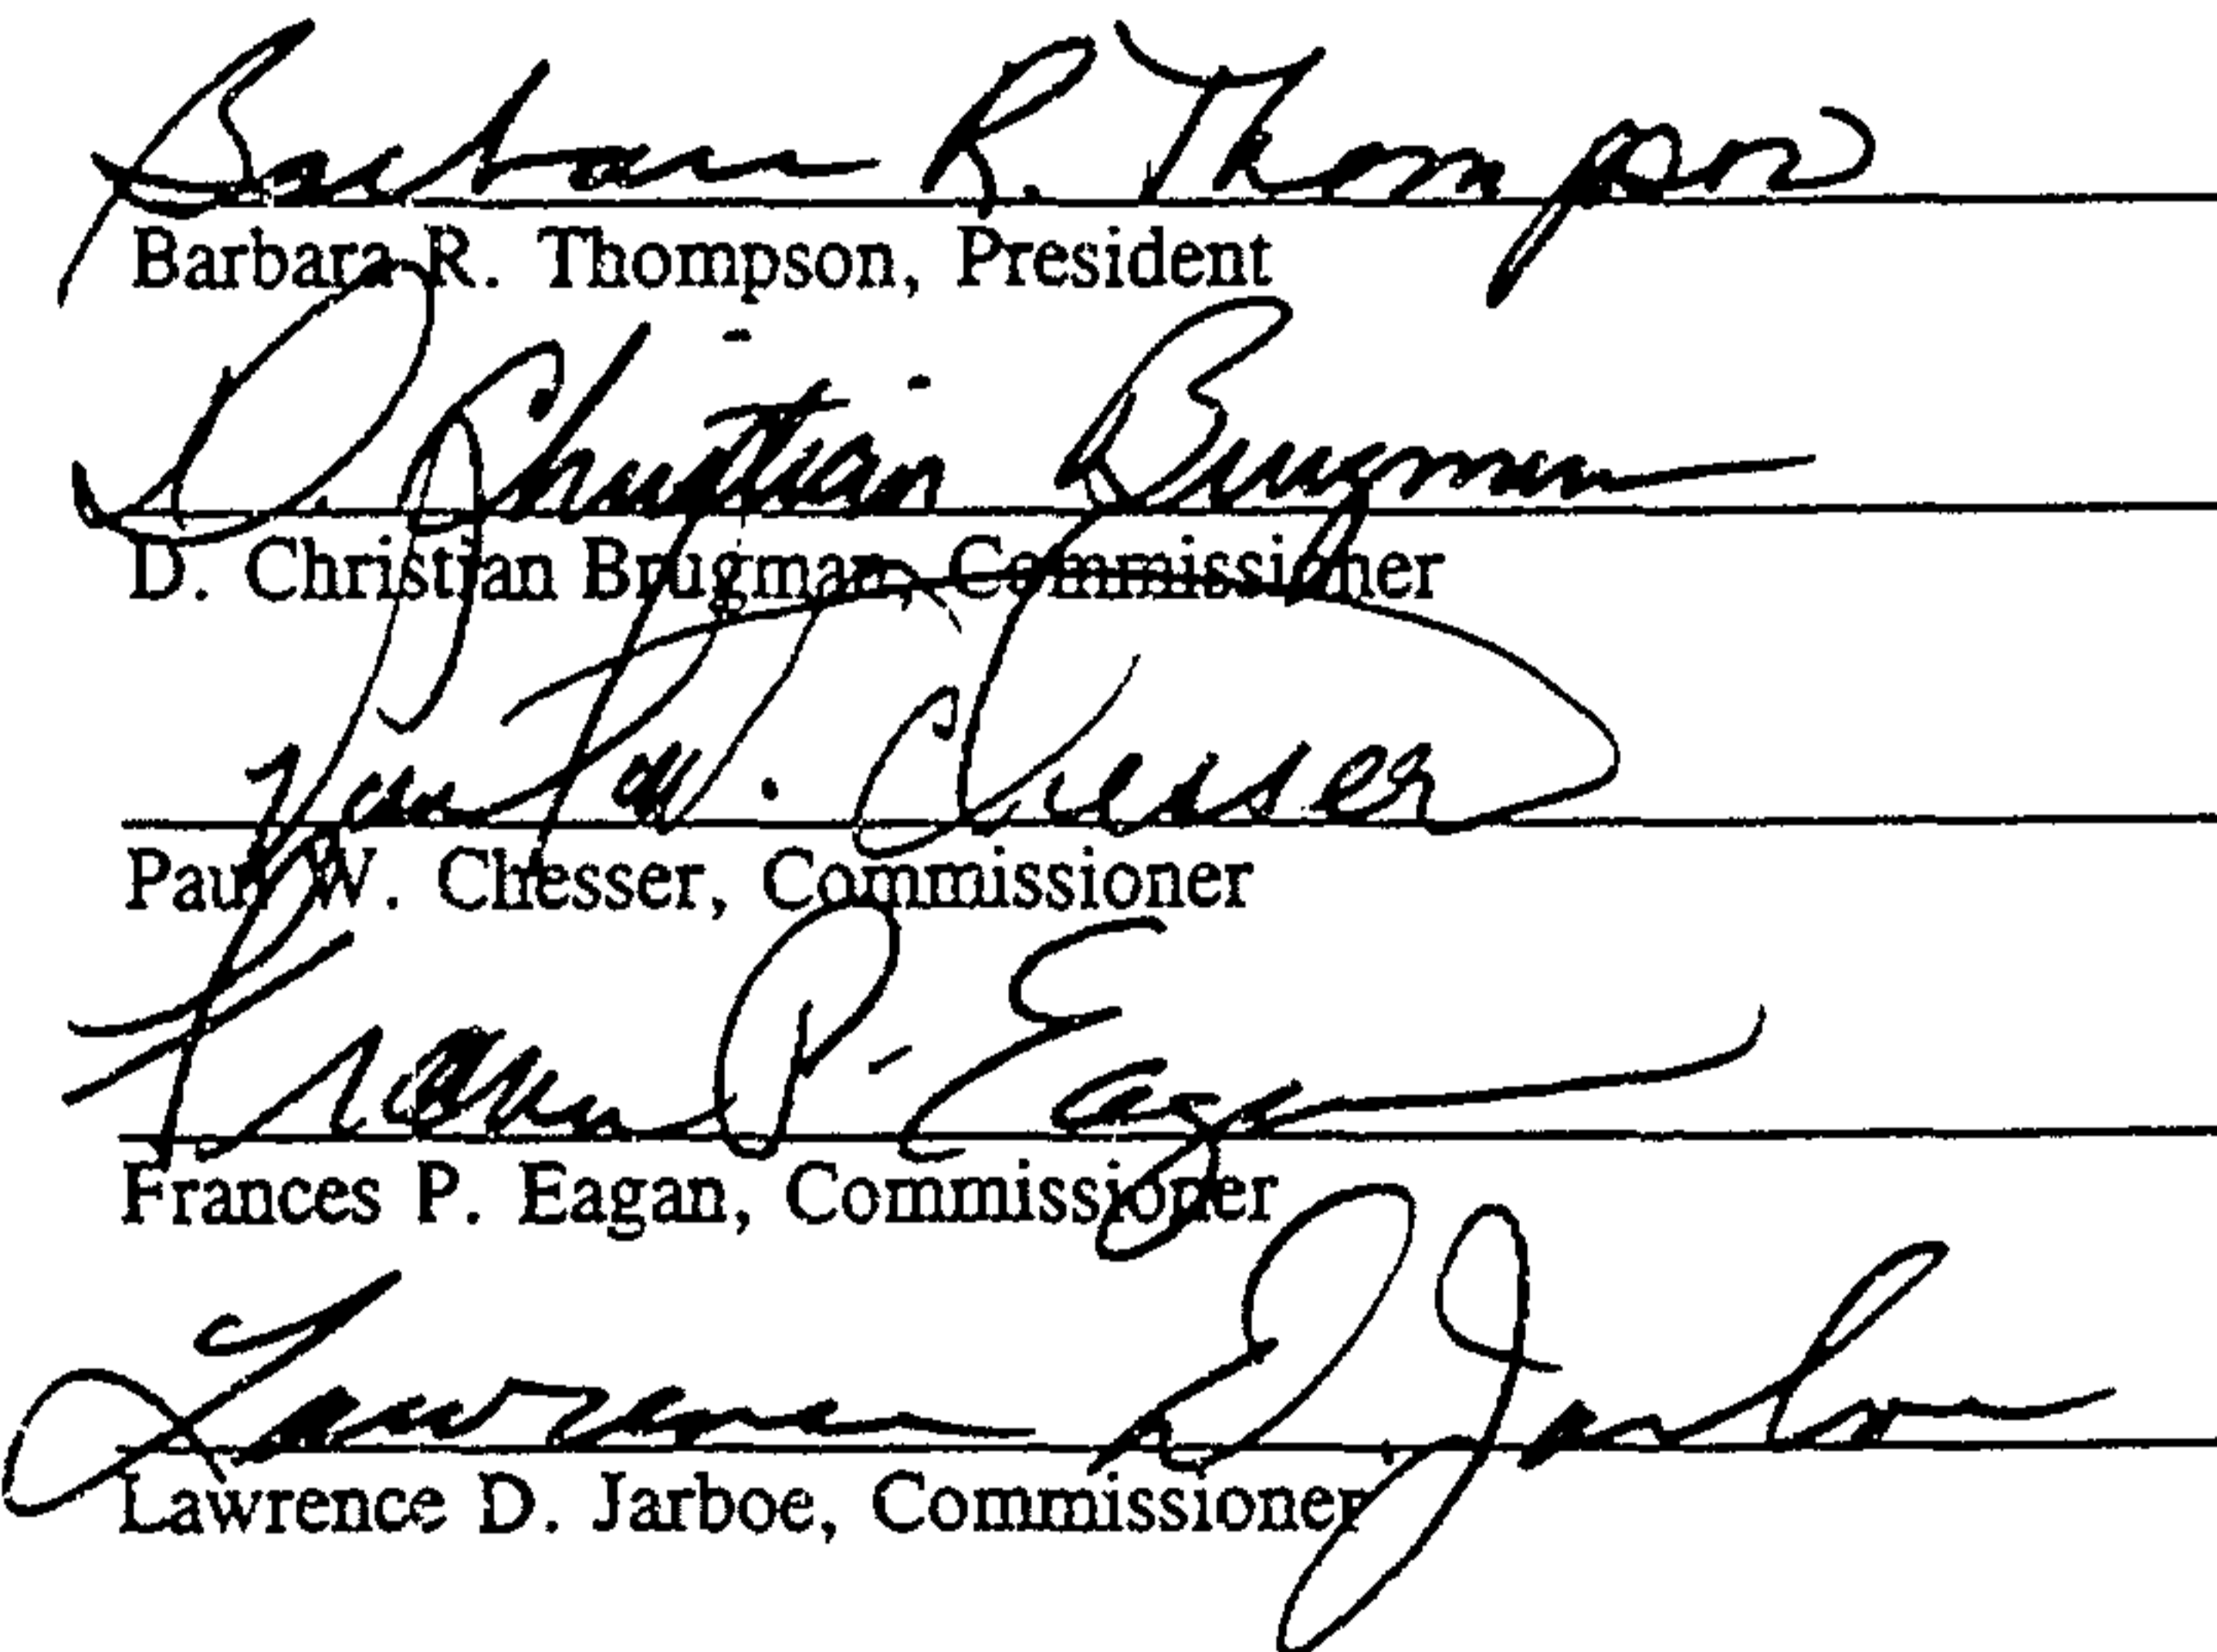 Barbara R. Thompson
Barbara R. Thompson, President
D. Christian Brugman
D. Christian Brugman, Commissioner
Paul W. Chesser
Paul W. Chesser, Commissioner
Frances P. Eagan
Frances P. Eagan, Commissioner
Lawrence D. Jarboe
Lawrence D. Jarboe, Commissioner